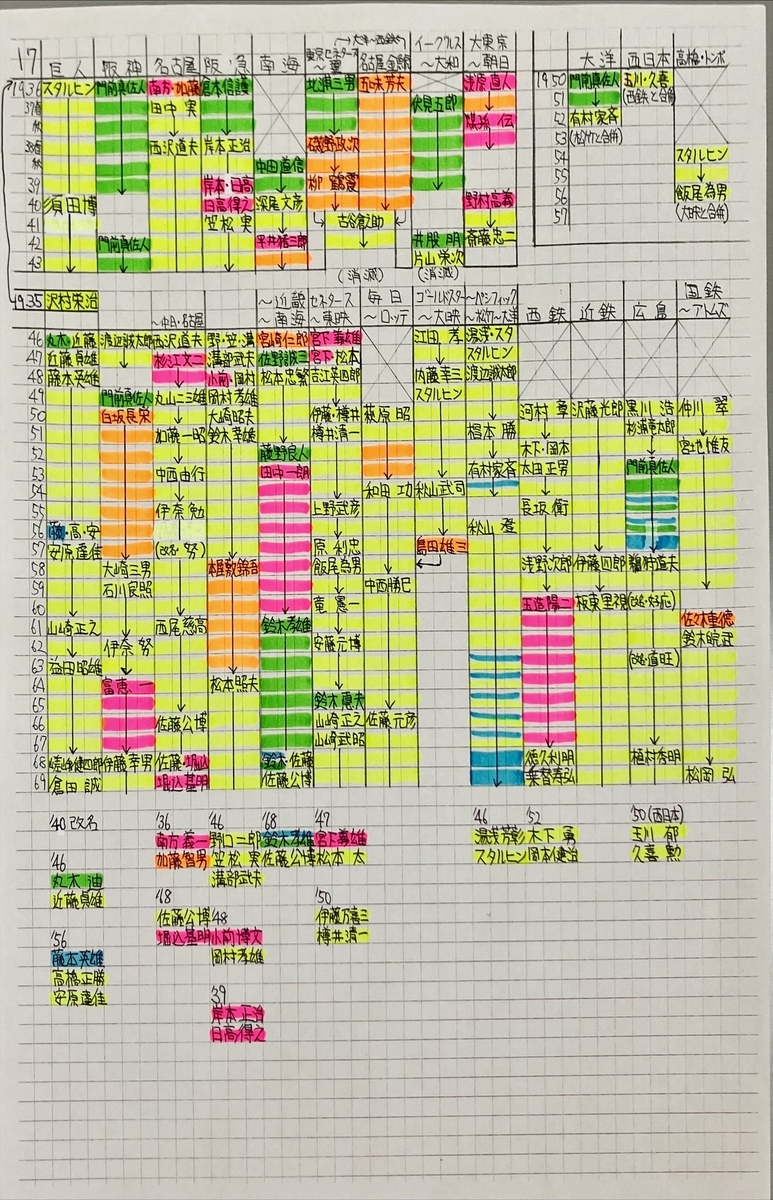 17 巨人 阪神 名古屋 阪急 南海 東京セネタース〜翼 大洋〜西鉄 名古屋金鯱 イーグルス〜大和 大東京〜朝日 大洋 西日本 高橋・トンボ
1936 スタルヒン 門前真佐人 南方・加藤 倉本信護 北浦三男 五味芳夫 浅原直人 1950 門前真佐人 玉川・久喜
37春 田中実 伏見五郎 51 (西鉄と合併)
秋 煤孫伝 52 有村家斉
38春 西沢道夫 岸本正治 磯野政次 53 (松竹と合併)
秋 中田道信 54 スタルヒン
39 岸本・日高 柳鶴震 55
40 須田博 日高得之 深尾文彦 野村高義 56 飯尾為男
41 笠松実 古谷倉之助 57 (大映と合併)
42 門前真佐人 平井猪三郎 井股朋 斎藤忠二
43 片山栄次
(消滅) (消滅)
1935 沢村栄治
〜中日・名古屋 〜近畿〜南海 セネタース〜東映 毎日〜ロッテ ゴールドスター〜大映 〜パシフィック〜松竹〜大洋 西鉄 近鉄 広島 国鉄〜アトムズ
46 丸木・近藤 渡辺誠太郎 西沢道夫 野・笠・溝 宮崎仁郎 宮下義雄 江田孝 湯浅・スタ
47 近藤貞雄 杉江文二 溝部武夫 佐野誠三 宮下・松本 スタルヒン
48 藤本英雄 小前・岡村 松本忠繁 吉江英四郎 内藤幸三 渡辺誠太郎
49 門前真佐人 丸山二三雄 岡村孝雄 スタルヒン
50 白坂長栄 大崎昭夫 伊藤・樽井 萩原昭 河村章 沢藤光郎 黒川浩 仲川翠
51 加藤一昭 鈴木幸雄 樽井清一 椙本勝 杉浦竜太郎
52 藤野良人 木下・岡本 宮地惟友
53 中西由行 田中一朗 有村家斉 太田正男 門前真佐人
54 和田功 秋山武司
55 伊奈勉 上野武彦 長坂衛
56 藤・高・安 秋山登
57 安原達佳 (改名・努) 原利忠 島田雄三
58 大崎三男 本屋敷錦吾 飯尾為男 浅野次郎 伊藤四郎 鵜狩道夫
59 石川良照 中西勝巳
60 童憲一 玉造陽二 板東里視 (改名・好応)
61 山崎正之 西尾慈高 鈴木孝雄 佐々木重徳
62 伊奈努 安藤元博 鈴木皖武
63 益田昭雄 (改名・道旺)
64 富恵一 松本照夫
65 鈴木悳夫
66 佐藤公博 山崎正之 佐藤元彦
67 山崎武昭
68 嵯峨健四郎 伊藤幸男 佐藤・堀込 鈴木・佐藤 徳久利明 植村秀明
69 倉田誠 堀込基明 佐藤公博 乗替寿弘 松岡弘
'40改名 '36 '46 '68 '47 '46 '52 '50(西日本)
南方義一 野口二郎 鈴木孝雄 宮下義雄 湯浅芳彰 木下勇 玉川郁
'46 加藤智男 笠松実 佐藤公博 松本太 スタルヒン 岡本健治 久喜勲
丸木迪 溝部武夫
近藤貞雄 '68 '50
佐藤公博 '48 伊藤万喜三
'56 堀込基明 小前博文 樽井清一
藤本英雄 岡村孝雄
高橋正勝
安原達佳 '39
岸本正治
日高得之